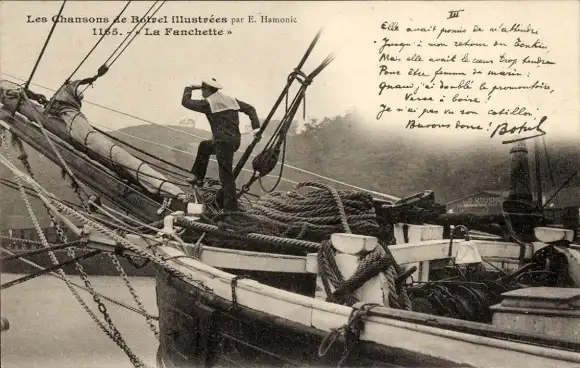 Les Chansons de Botrel illustrées par E. Hamonic
1165. - « La Fanchette »
III
Elle avait promis de m'attendre
Jusqu'à mon retour du Tonkin,
Mais elle avait le cœur trop tendre
Pour être femme de marin :
Quand j'ai doublé le promontoire,
Verse à boire !
Je n'ai pas vu son cotillon :
Buvons donc ! Botrel